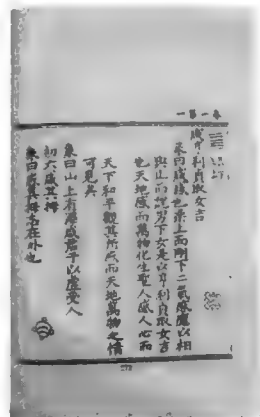 咸亨利貞取女吉
彖曰咸感也柔上而剛下二氣感應以相
與止而說男下女是以亨利貞取女吉
也天地感而萬物化生聖人感人心而
天下和平觀其所感而天地萬物之情
可見矣
象曰山上有澤咸君子以虛受人
初六咸其拇
象曰咸其拇志在外也